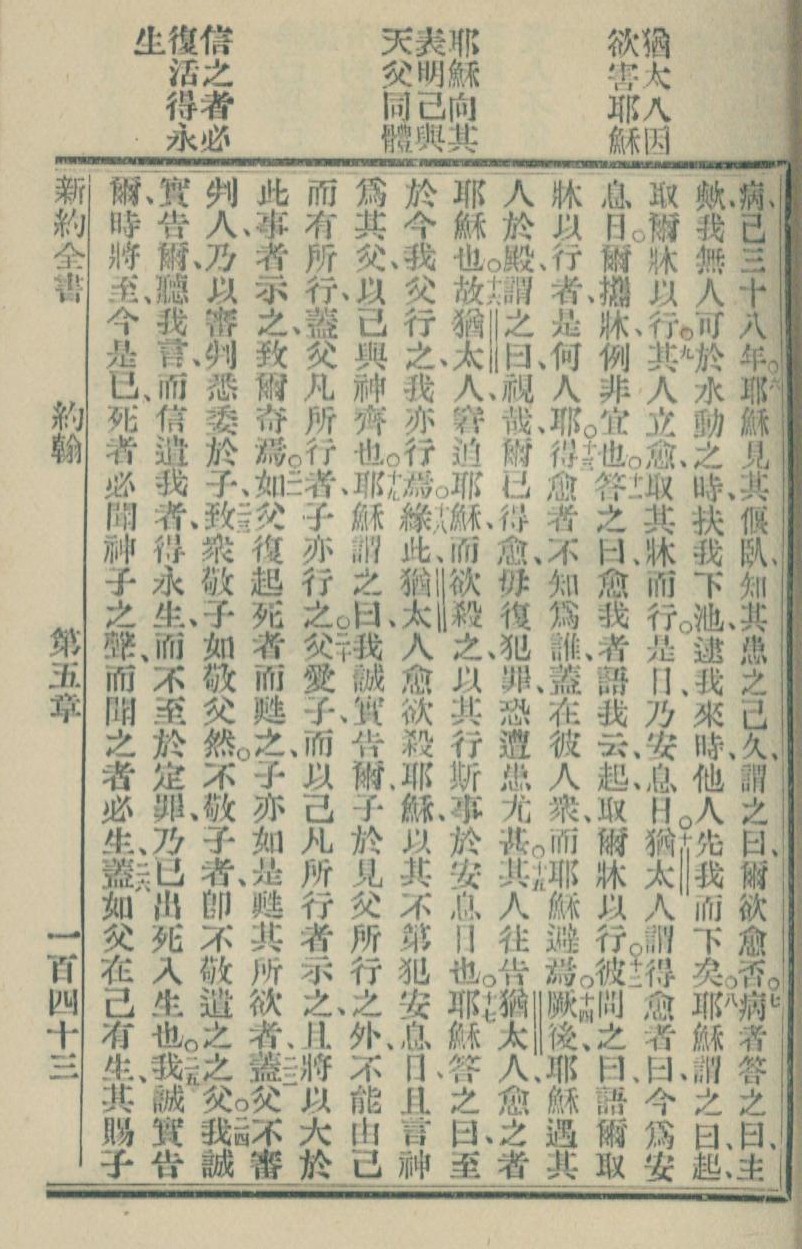 猶太人因
欲害耶穌
耶穌向其
表明己與
天父同體
信之者必
復活得永
生
病、己三十八年。六耶穌見其偃臥、知其患之已久、謂之曰、爾欲愈否。七病者答之曰、主
歟、我無人可於水動之時、扶我下池、逮我來時、他人先我而下矣。八耶穌謂之曰、起、
取爾牀以行。九其人立愈、取其牀而行。是日、乃安息日。十猶太人謂得愈者曰、今爲安
息日。爾攜牀、例非宜也。十一答之曰、愈我者語我云、起、取爾牀以行。十二彼問之曰、語爾取
牀以行者、是何人耶。十三得愈者不知爲誰、蓋在彼人衆、而耶穌避焉。十四厥後、耶穌遇其
人於殿、謂之曰、視哉、爾已得愈、毋復犯罪、恐遭患尤甚。十五其人往告猶太人、愈之者
耶穌也。十六故猶太人、窘迫耶穌、而欲殺之、以其行斯事於安息日也。十七耶穌答之曰、至
於今我父行之、我亦行焉。十八緣此、猶太人愈欲殺耶穌、以其不第犯安息日、且言神
爲其父、以己與神齊也。十九耶穌謂之曰、我誠實告爾、子於見父所行之外、不能由己
而有所行、蓋父凡所行者、子亦行之。二十父愛子、而以己凡所行者示之、且將以大於
此事者示之、致爾奇焉。二一如父復起死者而甦之、子亦如是甦其所欲者、二二蓋父不審
判人、乃以審判悉委於子、二三致衆敬子如敬父然。不敬子者、卽不敬遣之之父。二四我誠
實告爾、聽我言、而信遣我者、得永生、而不至於定罪、乃已出死入生也。二五我誠實告
爾、時將至、今是已、死者必聞神子之聲、而聞之者必生、二六蓋如父在己有生、其賜子
新約全書 約翰 第五章 一百四十三